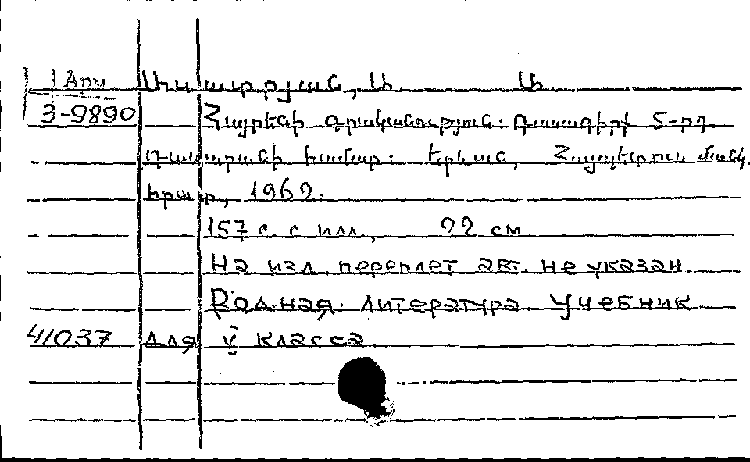 1 Арм
3-9890
Հայրենի գրականություն: Դասագիրք 5-րդ
դասարանի համար: Երևան, Հայպետուս մանկ.
հրատ., 1962.
157 с. с илл., 22 см
На изд. переплет авт. не указан.
Родная литература. Учебник
41037 для V класса